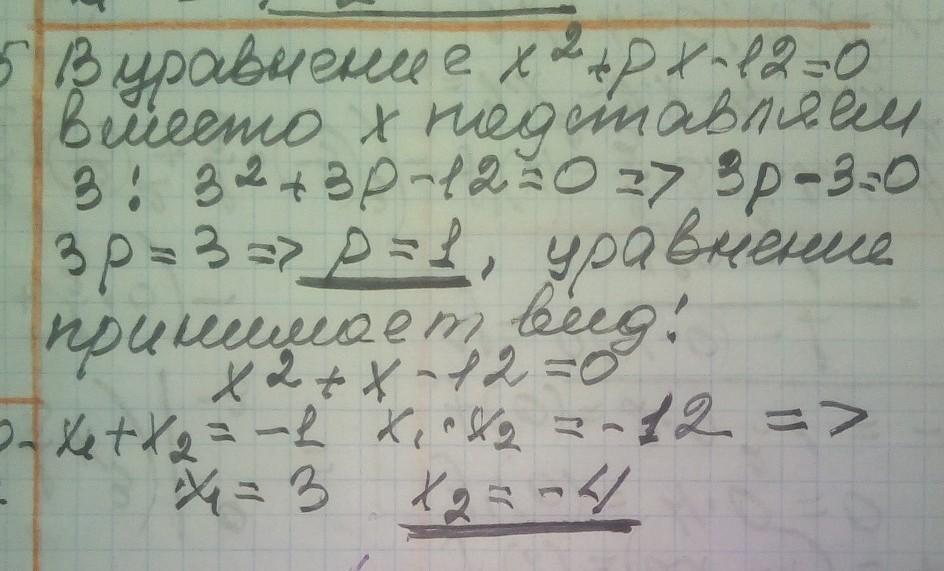 5 В уравнение x²+px-12=0
вместо x подставляем
3: 3²+3p-12=0 => 3p-3=0
3p=3 => p=1, уравнение
принимает вид:
x²+x-12=0
x₁+x₂=-1 x₁·x₂=-12 =>
x₁=3 x₂=-4